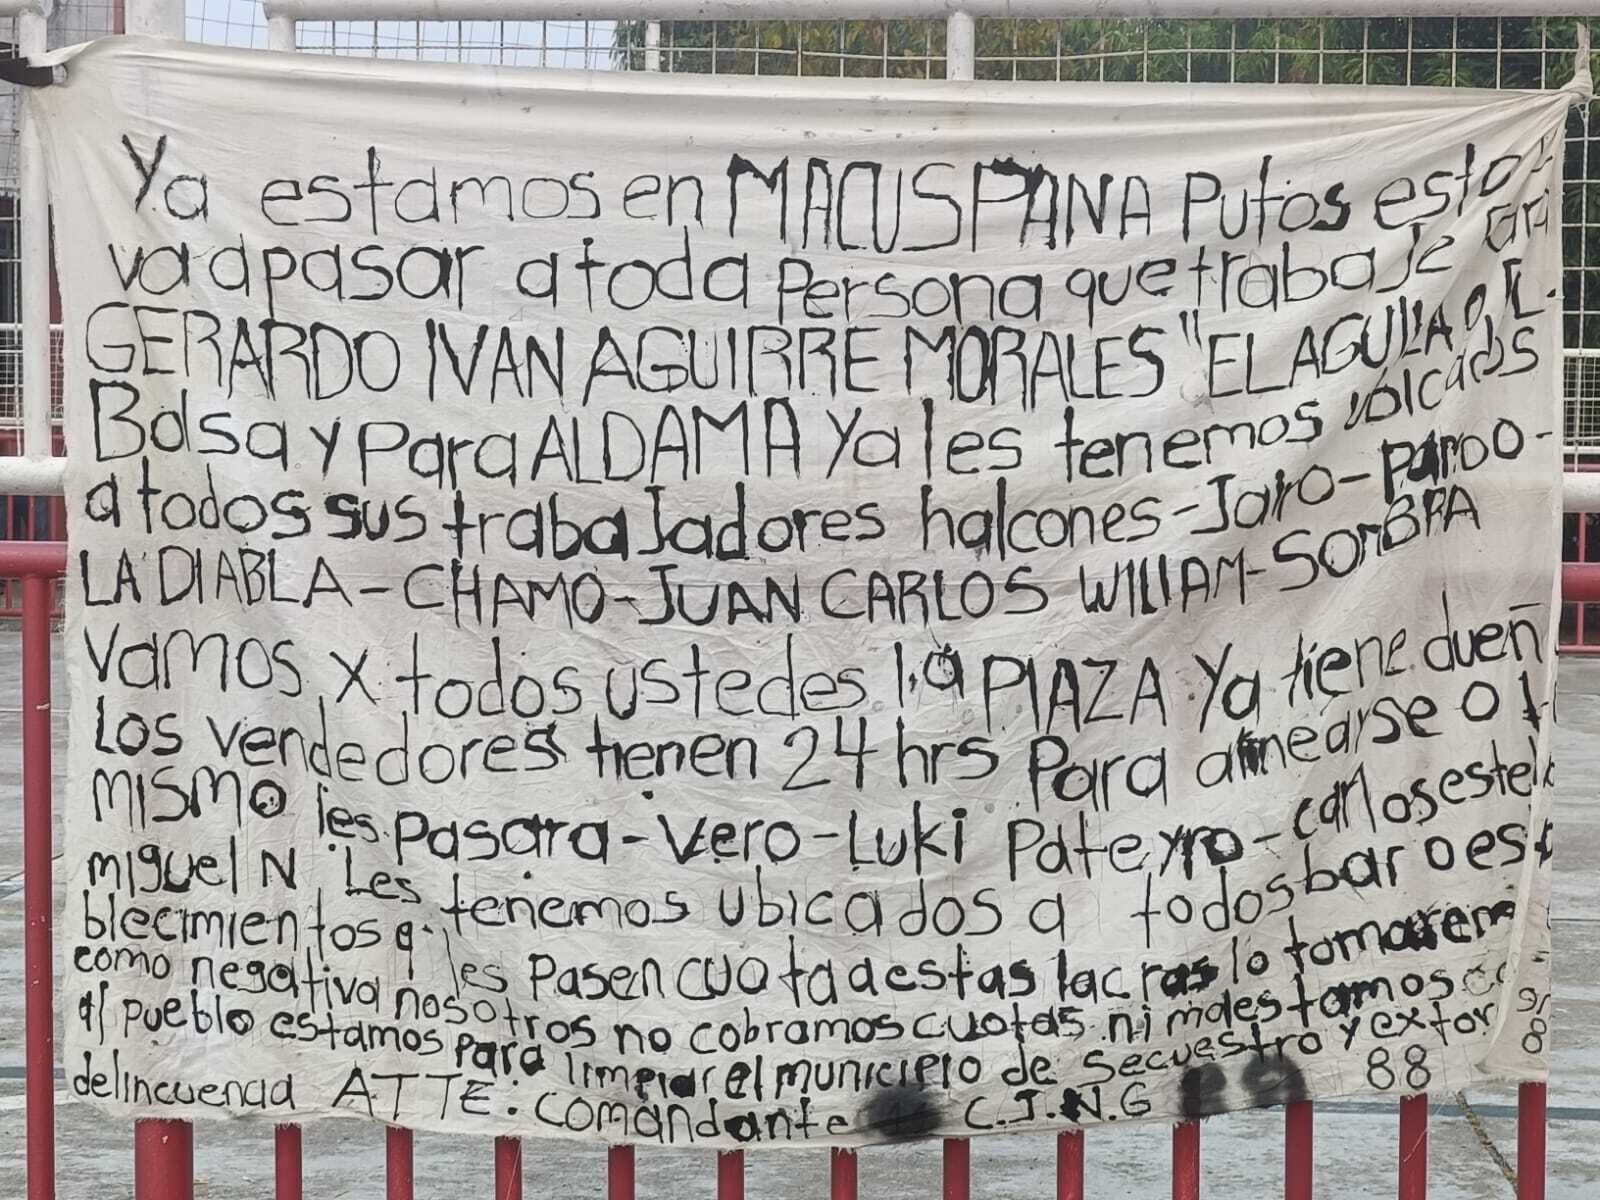 Ya estamos en MACUSPANA Putos esto
va a pasar a toda Persona que trabaje
GERARDO IVAN AGUIRRE MORALES "EL AGUILA O L.
Bolsa y Para ALDAMA Ya les tenemos
a todos sus trabajadores halcones-Jaro-
LA DIABLA-CHAMO-JUAN CARLOS WILIAM-SOMBRA
Vamos x todos ustedes la PLAZA Ya tiene dueñ
Los vendedores tienen 24 hrs Para alinearse o
MISMO les Pasara-Vero-Luki Pateyro-carlos estel
Miguel N. Les tenemos ubicados a todos bar o es
blecimientos q. les Pasen cuota a estas lacras lo tomarem
como negativa nosotros no cobramos cuotas ni molestamos
al pueblo estamos para limpiar el municipio de secuestro y extor
delincuencia ATTE. Comandante C.J.N.G 88